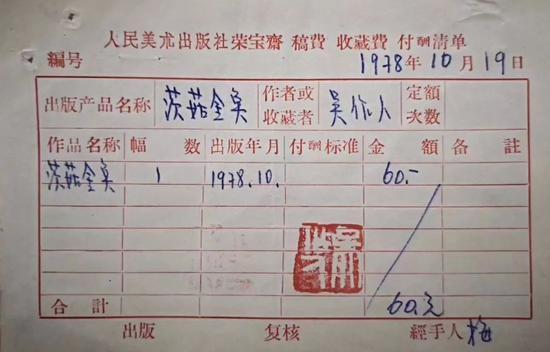 人民美朮出版社荣宝齋 稿費 收蔵費 付酬清单
编号 1978年10月19日
出版产品名称 茨菇金鱼 作者或收蔵者 吴作人 定額次数
作品名称 幅数 出版年月 付酬标准 金額 备註
茨菇金鱼 1 1978.10. 60.-
合計 60.元
出版 复核 經手人 梅